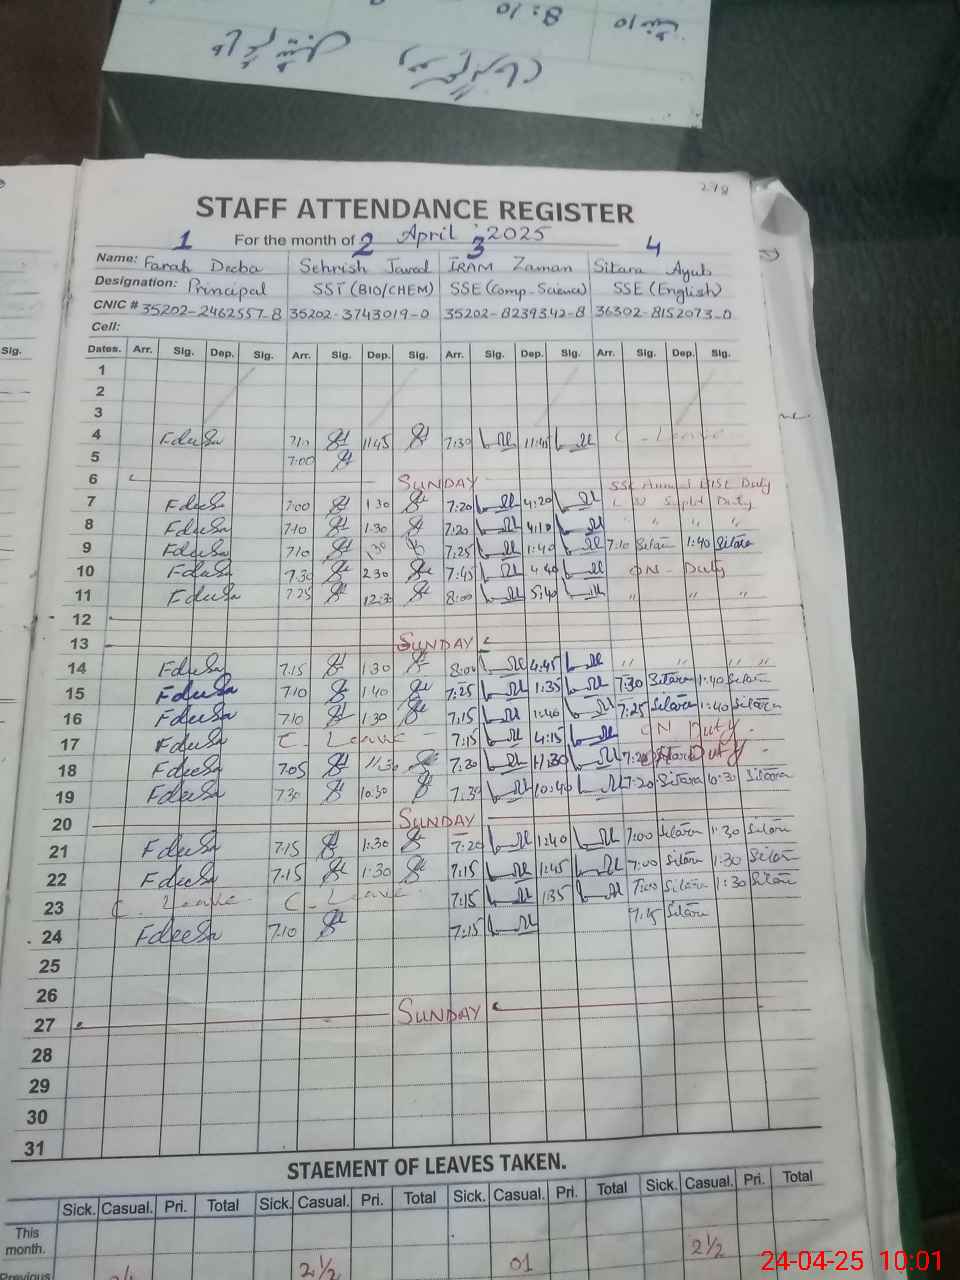 8:10
278
STAFF ATTENDANCE REGISTER
For the month of April 2025
1 2 3 4
Name: Farah Deeba Sehrish Javed IRAM Zaman Sitara Ayub
Designation: Principal SST (BIO/CHEM) SSE (Comp-Science) SSE (English)
CNIC # 35202-2462557-8 35202-3743019-0 35202-8239342-8 36302-8152073-0
Cell:
Sig. Dates. Arr. Sig. Dep. Sig. Arr. Sig. Dep. Sig. Arr. Sig. Dep. Sig. Arr. Sig. Dep. Sig.
1
2
3
4 7:10 11:45 7:30 11:45 C. Leave
5 7:00
6 SUNDAY
7 7:00 1:30 7:20 4:20 Duty
8 7:10 1:30 7:20 4:10 " " " "
9 7:10 1:30 7:25 1:40 7:10 Sitara 1:40 Sitara
10 7:30 2:30 7:45 4:40 ON - Duty
11 7:25 12:30 8:00 5:40 " " "
12
13 SUNDAY
14 7:15 1:30 8:00 4:45 " " " "
15 7:10 1:40 7:25 1:35 7:30 Sitara 1:40 Sitara
16 7:10 1:30 7:15 1:40 7:25 Sitara 1:40 Sitara
17 C. Leave 7:15 4:15 ON Duty
18 7:05 11:30 7:20 11:30 7:20 Duty
19 7:30 10:30 7:30 10:40 7:20 Sitara 10:30 Sitara
20 SUNDAY
21 7:15 1:30 7:20 1:40 7:00 Sitara 1:30 Sitara
22 7:15 1:30 7:15 1:45 7:00 Sitara 1:30 Sitara
23 C. Leave C. Leave 7:15 1:35 7:00 Sitara 1:30 Sitara
24 7:10 7:15 7:15 Sitara
25
26
27 SUNDAY
28
29
30
31
STAEMENT OF LEAVES TAKEN.
Sick. Casual. Pri. Total Sick. Casual. Pri. Total Sick. Casual. Pri. Total Sick. Casual. Pri. Total
This month. 2½
Previous 2½ 01
24-04-25 10:01